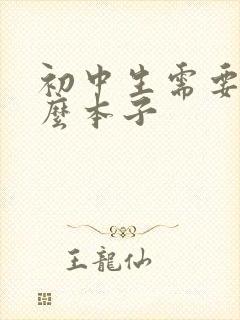 初中生需要
麼本子
王龍仙